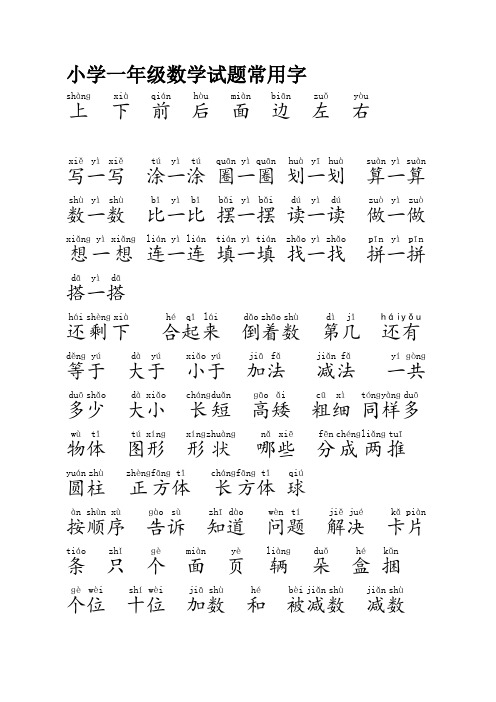 小学一年级数学试题常用字
shàng xià qián hòu miàn biān zuǒ yòu
上 下 前 后 面 边 左 右
xiě yì xiě tú yì tú quān yì quān huà yī huà suàn yì suàn
写一写 涂一涂 圈一圈 划一划 算一算
shǔ yì shǔ bǐ yì bǐ bǎi yì bǎi dú yì dú zuò yì zuò
数一数 比一比 摆一摆 读一读 做一做
xiǎng yì xiǎng lián yì lián tián yì tián zhǎo yì zhǎo pīn yì pīn
想一想 连一连 填一填 找一找 拼一拼
dā yì dā
搭一搭
hái shèng xià hé qǐ lái dào zhāo shù dì jǐ háiyǒu
还剩下 合起来 倒着数 第几 还有
děng yú dà yú xiǎo yú jiā fǎ jiǎn fǎ yí gòng
等于 大于 小于 加法 减法 一共
duō shǎo dà xiǎo chángduǎn gāo ǎi cū xì tóngyàng duō
多少 大小 长短 高矮 粗细 同样多
wù tǐ tú xíng xíngzhuàng nǎ xiē fēn chéngliǎng tuī
物体 图形 形状 哪些 分成两推
yuán zhù zhèngfāng tǐ chángfāng tǐ qiú
圆柱 正方体 长方体 球
àn shùn xù gào sù zhī dào wèn tí jiě jué kǎ piàn
按顺序 告诉 知道 问题 解决 卡片
tiáo zhī gè miàn yè liàng duǒ hé kǔn
条 只 个 面 页 辆 朵 盒 捆
gè wèi shí wèi jiā shù hé bèi jiǎn shù jiǎn shù
个位 十位 加数 和 被减数 减数